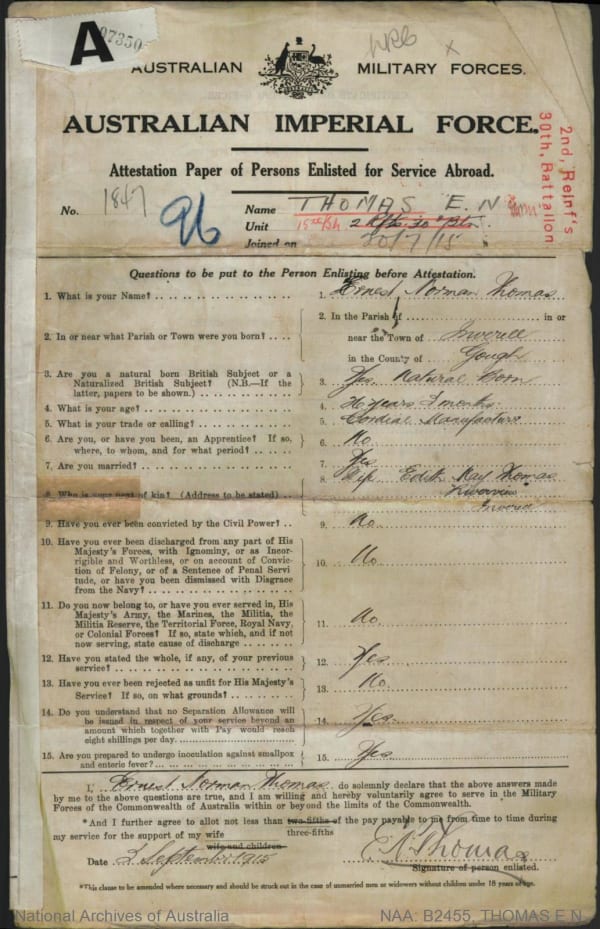 07350
A
AUSTRALIAN MILITARY FORCES.
AUSTRALIAN IMPERIAL FORCE.
2nd, Reinf's
30th, Battalion
Attestation Paper of Persons Enlisted for Service Abroad.
No. 1847
96
Name THOMAS E. N
Unit
Joined on 30/7/15
Questions to be put to the Person Enlisting before Attestation.
1. What is your Name? 1. Ernest Norman Thomas
2. In or near what Parish or Town were you born? 2. In the Parish of in or
near the Town of Inverell
in the County of Gough
3. Are you a natural born British Subject or a
Naturalized British Subject? (N.B.—If the
latter, papers to be shown.) 3. Yes Natural Born
4. What is your age? 4. years months
5. What is your trade or calling? 5. Cordial Manufacture
6. Are you, or have you been, an Apprentice? If so,
where, to whom, and for what period? 6. No
7. Are you married? 7. Yes
8. Who is your next of kin? (Address to be stated) 8. Edith May Thomas
Inverell
9. Have you ever been convicted by the Civil Power? 9. No
10. Have you ever been discharged from any part of His
Majesty's Forces, with Ignominy, or as Incor-
rigible and Worthless, or on account of Convic-
tion of Felony, or of a Sentence of Penal Servi
tude, or have you been Dismissed with Disgrace
from the Navy? 10. No
11. Do you now belong to, or have you ever served in, His
Majesty's Army, the Marines, the Militia, the
Militia Reserve, the Territorial Force, Royal Navy,
or Colonial Forces? If so, state which, and if not
now serving, state cause of discharge 11. No
12. Have you stated the whole, if any, of your previous
service? 12. Yes
13. Have you ever been rejected as unfit for His Majesty's
Service? If so, on what grounds? 13. No
14. Do you understand that no Separation Allowance will
be issued in respect of your service beyond an
amount which together with Pay would reach
eight shillings per day. 14. Yes
15. Are you prepared to undergo inoculation against smallpox
and enteric fever? 15. Yes
I, Ernest Norman Thomas do solemnly declare that the above answers made
by me to the above questions are true, and I am willing and hereby voluntarily agree to serve in the Military
Forces of the Commonwealth of Australia within or beyond the limits of the Commonwealth.
*And I further agree to allot not less than two-fifths of the pay payable to me from time to time during
three-fifths
my service for the support of my wife
wife and children
Date 3 September 1915 E N Thomas
Signature of person enlisted.
*This clause to be amended where necessary and should be struck out in the case of unmarried men or widowers without children under 18 years of age.
National Archives of Australia NAA: B2455, THOMAS E N